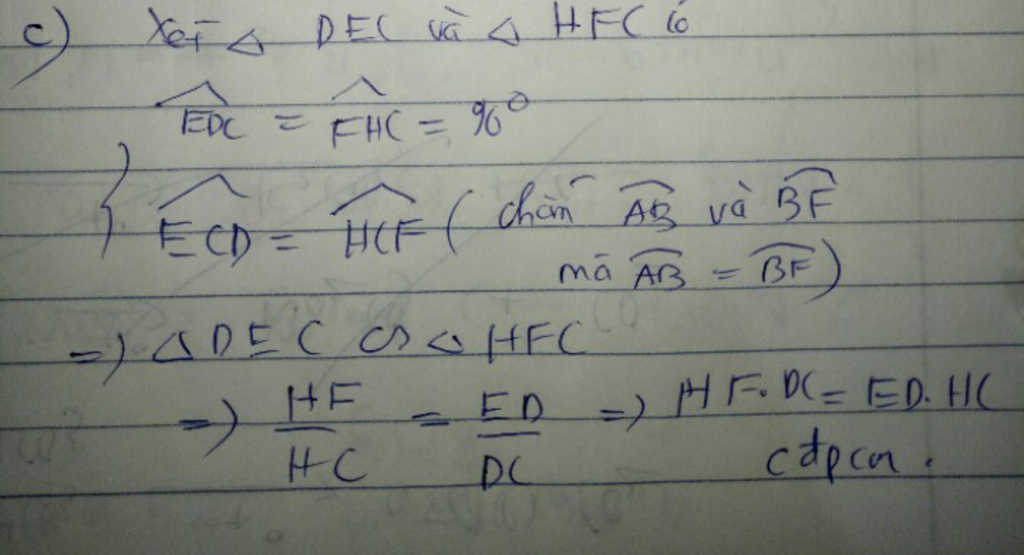 c) Xét △ DEC và △ HFC có
{ \widehat{EDC} = \widehat{FHC} = 90°
\widehat{ECD} = \widehat{HCF} ( chắn \overset{\frown}{AB} và \overset{\frown}{BF}
mà \overset{\frown}{AB} = \overset{\frown}{BF} )
=) △ DEC ∽ △ HFC
=) HF/HC = ED/DC =) HF.DC = ED.HC
cđpcm.